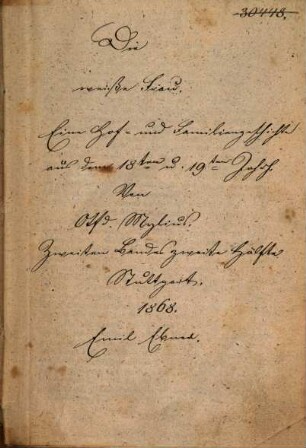 30448.
Die
weiße Frau.
Eine Hof- und Familiengeschichte
aus dem 18ten u. 19ten Jahrh.
Von
Otfd. Mylius.
Zweiten Bandes zweite Hälfte
Stuttgart.
1868.
Emil Ebner.